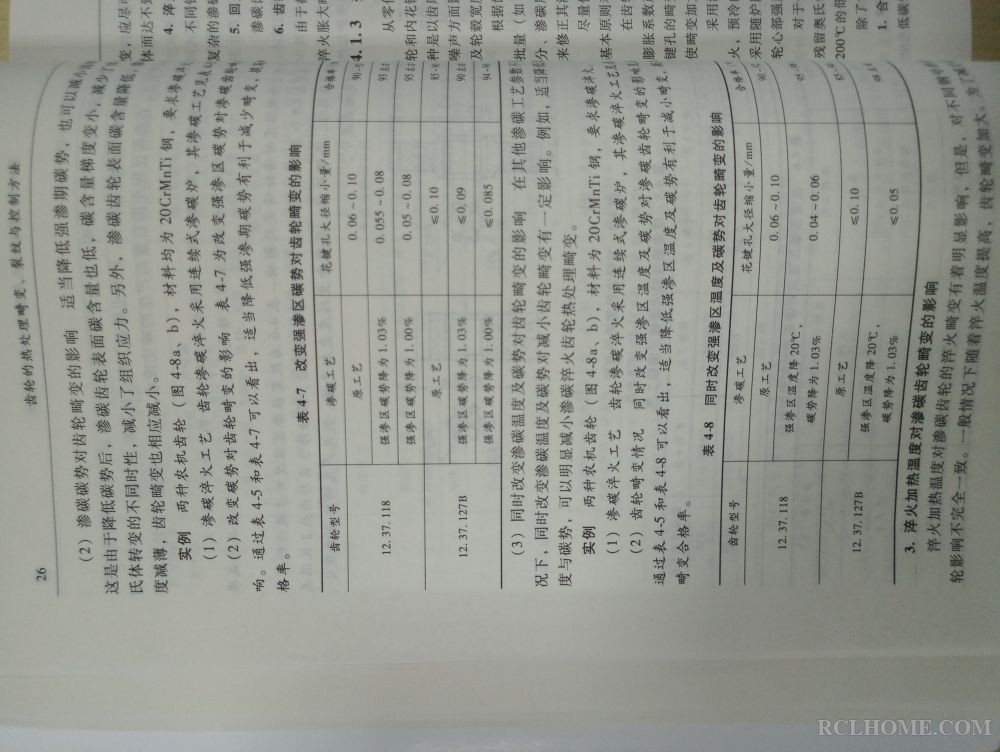 26
齿轮的热处理畸变、裂纹与控制方法
(2) 渗碳碳势对齿轮畸变的影响 适当降低强渗期碳势,也可以减小
这是由于降低碳势后,渗碳齿轮表面碳含量也低,碳含量梯度变小,减少了
氏体转变的不同时性,减小了组织应力。另外,渗碳齿轮表面碳含量降低,
度减薄,齿轮畸变也相应减小。
实例 两种农机齿轮(图 4-8a、b),材料均为 20CrMnTi 钢,要求渗碳
(1) 渗碳淬火工艺 齿轮渗碳淬火采用连续式渗碳炉,其渗碳工艺见
(2) 改变碳势对齿轮畸变的影响 表 4-7 为改变强渗区碳势对渗碳齿轮畸
响。通过表 4-5 和表 4-7 可以看出,适当降低强渗期碳势有利于减少畸变,
格率。
表 4-7 改变强渗区碳势对齿轮畸变的影响
齿轮型号 渗碳工艺 花键孔大径缩小量/mm 合格率
12.37.118 原工艺 0.06~0.10 90
强渗区碳势降为 1.03% 0.055~0.08 93
强渗区碳势降为 1.00% 0.05~0.08 95
12.37.127B 原工艺 ≤0.10 85
强渗区碳势降为 1.03% ≤0.09 90
强渗区碳势降为 1.00% ≤0.085 94
(3) 同时改变渗碳温度及碳势对齿轮畸变的影响 在其他渗碳工艺参数不
况下,同时改变渗碳温度及碳势对减小齿轮畸变有一定影响。例如,适当降
度与碳势,可以明显减小渗碳淬火齿轮热处理畸变。
实例 两种农机齿轮(图 4-8a、b),材料为 20CrMnTi 钢,要求渗碳淬火
(1) 渗碳淬火工艺 齿轮渗碳淬火采用连续式渗碳炉,其渗碳淬火工艺见
(2) 齿轮畸变情况 同时改变强渗区温度及碳势对渗碳齿轮畸变的影响
通过表 4-5 和表 4-8 可以看出,适当降低强渗区温度及碳势有利于减小畸变,
畸变合格率。
表 4-8 同时改变强渗区温度及碳势对齿轮畸变的影响
齿轮型号 渗碳工艺 花键孔大径缩小量/mm 合格率
12.37.118 原工艺 0.06~0.10 90
强渗区温度降 20℃,
碳势降为 1.03% 0.04~0.06 95
12.37.127B 原工艺 ≤0.10 85
强渗区温度降 20℃,
碳势降为 1.03% ≤0.05
3. 淬火加热温度对渗碳齿轮畸变的影响
淬火加热温度对渗碳齿轮的淬火畸变有着明显影响,但是,对不同钢
轮影响不完全一致。一般情况下随着淬火温度提高,齿轮畸变加大。为了减
变,应尽
体而达不到
4. 淬
不同
复杂的渗碳
5. 回
渗碳
6. 齿
由于
淬火胀大
4.1.3
从零件
轮和内花
种是以齿
噪声方面
及轮毂宽
根据
批量(如
分,渗碳
来修住其
尽量
基本原则
在齿
膨胀系数
键孔的畸
使畸变加
采用
火,预冷
采用随炉
轮心部强
对于
残留奥氏
200℃的
除了
1. 合
低碳
RCLHOME.COM